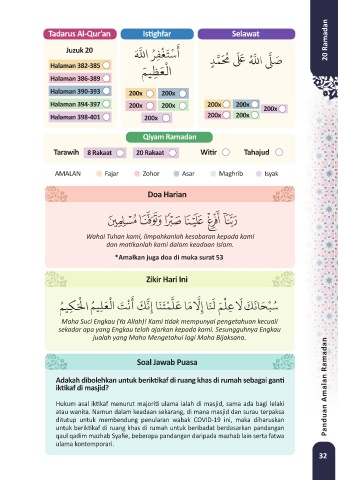 Tadarus Al-Qur'an
Juzuk 20
Halaman 382-385
Halaman 386-389
Halaman 390-393
Halaman 394-397
Halaman 398-401
Istighfar
أَسْتَغْفِرُ اللَّهَ
الْعَظِيمَ
200x 200x
200x 200x
200x
Selawat
صَلَّى اللَّهُ عَلَى مُحَمَّدٍ
200x 200x
200x
200x 200x
Qiyam Ramadan
Tarawih 8 Rakaat 20 Rakaat Witir Tahajud
AMALAN Fajar Zohor Asar Maghrib Isyak
Doa Harian
رَبَّنَا أَفْرِغْ عَلَيْنَا صَبْرًا وَتَوَفَّنَا مُسْلِمِينَ
Wahai Tuhan kami, limpahkanlah kesabaran kepada kami
dan matikanlah kami dalam keadaan Islam.
*Amalkan juga doa di muka surat 53
Zikir Hari Ini
سُبْحَانَكَ لَا عِلْمَ لَنَا إِلَّا مَا عَلَّمْتَنَا إِنَّكَ أَنْتَ الْعَلِيمُ الْحَكِيمُ
Maha Suci Engkau (Ya Allah)! Kami tidak mempunyai pengetahuan kecuali
sekadar apa yang Engkau telah ajarkan kepada kami. Sesungguhnya Engkau
jualah yang Maha Mengetahui lagi Maha Bijaksana.
Soal Jawab Puasa
Adakah dibolehkan untuk beriktikaf di ruang khas di rumah sebagai ganti
iktikaf di masjid?
Hukum asal iktikaf menurut majoriti ulama ialah di masjid, sama ada bagi lelaki
atau wanita. Namun dalam keadaan sekarang, di mana masjid dan surau terpaksa
ditutup untuk membendung penularan wabak COVID-19 ini, maka diharuskan
untuk beriktikaf di ruang khas di rumah untuk beribadat berdasarkan pandangan
qaul qadim mazhab Syafie, beberapa pandangan daripada mazhab lain serta fatwa
ulama kontemporari.
20 Ramadan
Panduan Amalan Ramadan
32